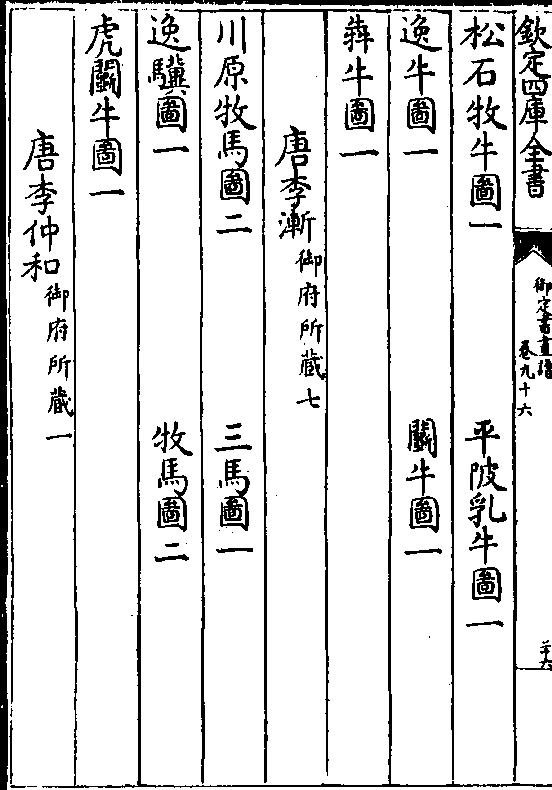 欽定四庫全書
御定書畫譜
卷九十六
二十六
松石牧牛圖一 平陂乳牛圖一
逸牛圖一 鬭牛圖一
犇牛圖一
唐李漸御府所藏七
川原牧馬圖二 三馬圖一
逸驥圖一 牧馬圖二
虎鬭牛圖一
唐李仲和御府所藏一